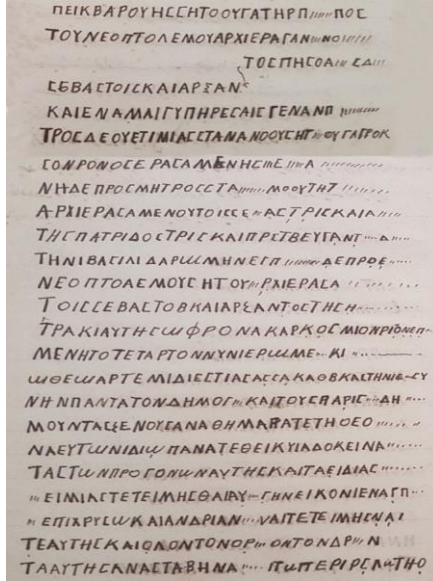 ΠΕΙΚΒΑΡΟΥΗϹϹΗΤΟΟΥΓΑΤΗΡΠ ΠΟϹ
ΤΟΥΝΕΟΠΤΟΛΕΜΟΥΑΡΧΙΕΡΑΓΑΝ ΝΟ
ΤΟϹΠΗϹΟΑ ϹΔ
ϹΕΒΑϹΤΟΙϹΚΑΙΑΡΞΑΝ
ΚΑΙΕΝΑΜΑΙΓΥΠΗΡΕϹΑΙϹΓΕΝΑΝΠ
ΤΡΟϹΔΕΟΥΕΤΙΜΙΑϹϹΤΑΝΑΝΟΟΥϹΗΤ ΟΥΓΑΤΡΟΚ
ϹΟΝΡΟΝΟϹΕΡΑϹΑΜΕΝΗϹ
ΝΗΔΕΠΡΟϹΜΗΤΡΟϹϹΤΑ ΜΟΟΥΤΗΤ
ΑΡΧΙΕΡΑϹΑΜΕΝΟΥΤΟΙϹϹΕ ΑϹΤΡΙϹΚΑΙΑ
ΤΗϹΠΑΤΡΙΔΟϹΤΡΙϹΚΑΙΠΡΕϹΒΕΥΓΑΝΤ Δ
ΤΗΝΙΒΑϹΙΛΙΔΑΡΩΜΗΝΕΓΠ ΔΕΠΡΟΕ
ΝΕΟΠΤΟΛΕΜΟΥϹΗΤΟΥ ΡΧΙΕΡΑϹΑ
ΤΟΙϹϹΕΒΑϹΤΟΒΚΑΙΑΡΞΑΝΤΟϹΤΗϹΗ
ΤΡΑΚΙΑΥΤΗϹΩΦΡΟΝΑΚΑΡΚΟϹΜΙΟΧΡΙΟΝΕΠ
ΜΕΝΗΤΟΤΕΤΑΡΤΟΝΝΥΝΙΕΡΩΜΕ ΚΙ
ΩΘΕΩΑΡΤΕΜΙΔΙΕϹΤΙΑϹΑϹϹΑΚΑΘΒΚΑϹΤΗΝΙΕ ϹΥ
ΝΗΝΠΑΝΤΑΤΟΝΔΗΜΟ ΚΑΙΤΟΥϹΠΑΡΙϹ ΔΗ
ΜΟΥΝΤΑϹΞΕΝΟΥϹΑΝΑΘΗΜΑΡΑΤΕΤΗΘΕΟ
ΝΑΕΥΤΩΝΙΔΙΩΠΑΝΑΤΕΘΕΙΚΥΙΑΔΟΚΕΙΝΑ
ΤΑϹΤΩΝΠΡΟΓΟΝΩΝΑΥΤΗϹΚΑΙΤΑΕΙΔΙΑϹ
ΕΙΜΙΑϹΤΕΤΕΙΜΗϹΘΑΙΑΥ ΓΗΝΕΙΚΟΝΙΕΝΑΓΠ
ΕΠΙΧΡΥϹΩΚΑΙΑΝΔΡΙΑΝ ΝΑΙΤΕΤΕΙΜΗϹΝΑΙ
ΤΕΑΥΤΗϹΚΑΙΟΛΟΝΤΟΝΟΡ ΟΝΤΟΝΔΡ Ν
ΤΑΑΥΤΗϹΑΝΑϹΤΑΒΗΝΑ ΠΩΠΕΡΙΡϹΛΩΤΗΟ